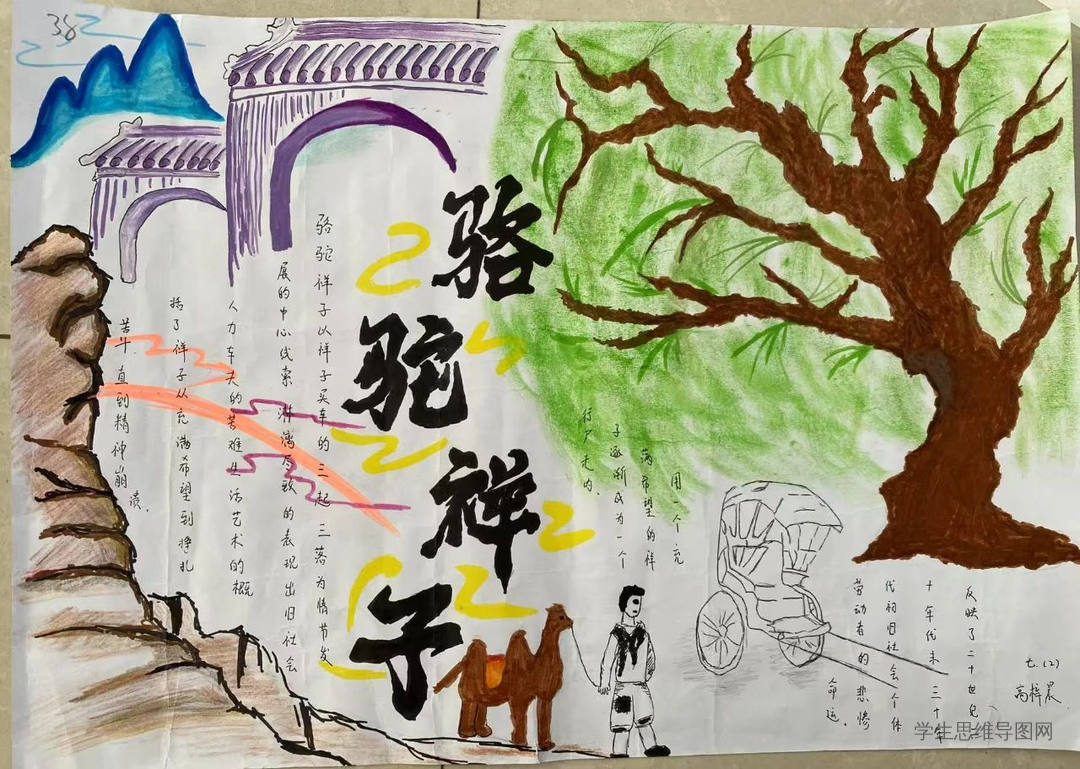 38
骆驼祥子
骆驼祥子以祥子买车的三起三落为情节发
展的中心线索淋漓尽致的表现出旧社会
人力车夫的苦难生活艺术的概
括了祥子从充满希望到挣扎
苦斗直到精神崩溃。
用一个充
满希望的祥
子逐渐成为一个
行尸走肉、
反映了二十世纪
十年代末三十年
代初旧社会个体
劳动者的悲惨
命运。
七.(2)
高梓晨
学生思维导图网